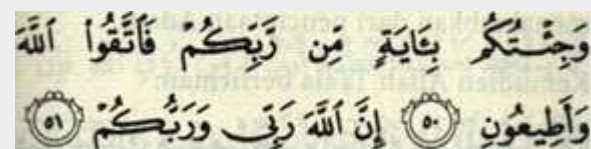 وَجِئْتُكُم بِـَٔايَةٍ مِّن رَّبِّكُمْ فَٱتَّقُوا۟ ٱللَّهَ
وَأَطِيعُونِ ٥٠ إِنَّ ٱللَّهَ رَبِّى وَرَبُّكُمْ ٥١